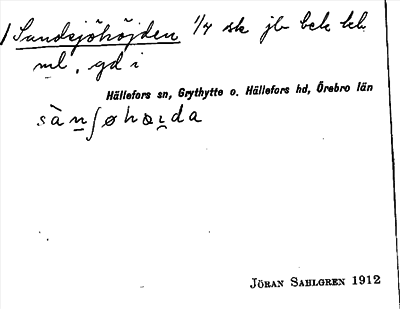 Sandsjöhöjden 1/4 sk jb beb bb
ml. gd i
Hällefors sn, Grythytte o. Hällefors hd, Örebro län
sànʃøhɷɪda
JÖRAN SAHLGREN 1912